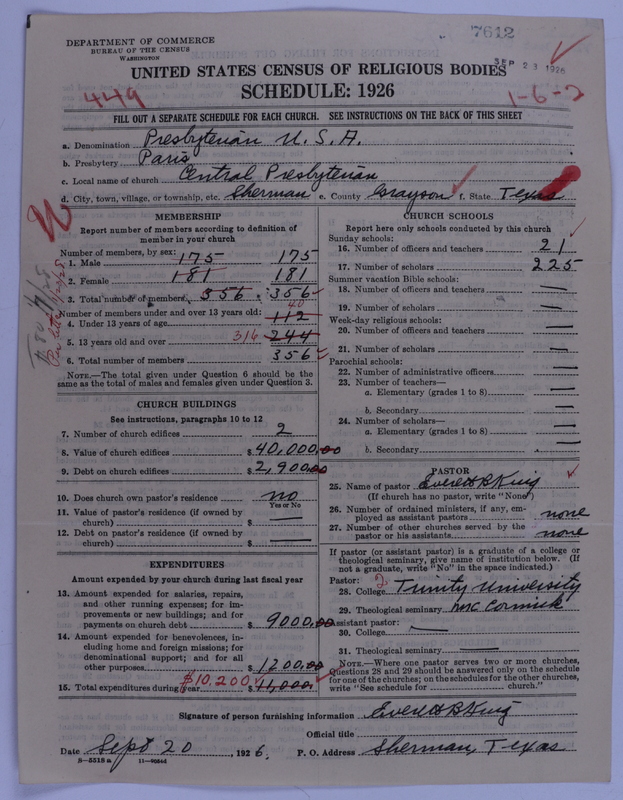 7612
DEPARTMENT OF COMMERCE
BUREAU OF THE CENSUS
WASHINGTON
SEP 23 1926
UNITED STATES CENSUS OF RELIGIOUS BODIES
SCHEDULE: 1926
449
1-6-2
FILL OUT A SEPARATE SCHEDULE FOR EACH CHURCH. SEE INSTRUCTIONS ON THE BACK OF THIS SHEET
a. Denomination Presbyterian U.S.A.
b. Presbytery Paris
c. Local name of church Central Presbyterian
d. City, town, village, or township, etc. Sherman e. County Grayson f. State Texas
MEMBERSHIP
Report number of members according to definition of member in your church
Number of members, by sex:
1. Male 175 175
2. Female 181 181
3. Total number of members 356 356
Number of members under and over 13 years old: 40
4. Under 13 years of age 112
5. 13 years old and over 316 244
6. Total number of members 356
NOTE.—The total given under Question 6 should be the same as the total of males and females given under Question 3.
CHURCH BUILDINGS
See instructions, paragraphs 10 to 12
7. Number of church edifices 2
8. Value of church edifices $ 40,000.00
9. Debt on church edifices $ 2,900.00
10. Does church own pastor's residence no
Yes or No
11. Value of pastor's residence (if owned by church) $ —
12. Debt on pastor's residence (if owned by church) $ —
EXPENDITURES
Amount expended by your church during last fiscal year
13. Amount expended for salaries, repairs, and other running expenses; for improvements or new buildings; and for payments on church debt $ 9000.00
14. Amount expended for benevolences, including home and foreign missions; for denominational support; and for all other purposes $ 1200.00
15. Total expenditures during year $10,200 $ 11,000
CHURCH SCHOOLS
Report here only schools conducted by this church
Sunday schools:
16. Number of officers and teachers 21
17. Number of scholars 225
Summer vacation Bible schools:
18. Number of officers and teachers —
19. Number of scholars —
Week-day religious schools:
20. Number of officers and teachers —
21. Number of scholars —
Parochial schools:
22. Number of administrative officers —
23. Number of teachers—
a. Elementary (grades 1 to 8) —
b. Secondary —
24. Number of scholars—
a. Elementary (grades 1 to 8) —
b. Secondary —
PASTOR
25. Name of pastor Everett B King
(If church has no pastor, write "None")
26. Number of ordained ministers, if any, employed as assistant pastors none
27. Number of other churches served by the pastor or his assistants none
If pastor (or assistant pastor) is a graduate of a college or theological seminary, give name of institution below. (If not a graduate, write "No" in the space indicated.)
Pastor: 2
28. College Trinity University
29. Theological seminary McCormick
Assistant pastor:
30. College —
31. Theological seminary —
NOTE.—Where one pastor serves two or more churches, Questions 28 and 29 should be answered only on the schedule for one of the churches; on the schedules for the other churches, write "See schedule for church."
Signature of person furnishing information Everett B King
Official title
Date Sept 20, 1926. P. O. Address Sherman, Texas
8—5518 a 11—90544